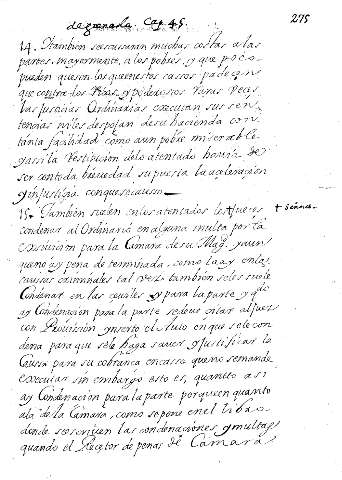 de granada. Cap. 45. 275
14. Tambien se escusaran muchas costas a las
partes, mayormente, a los pobres, y que poco
pueden que son los que en estos casos padecen
que contra los Ricos, y Poderosos raras veces
las Justicias Ordinarias executan sus sen-
tencias ni les despojan de su hacienda con
tanta facilidad como a un pobre miserable
y assi la restitucion de lo atentado havia de
ser con toda brevedad supuesta la aceleracion
y injusticia con que se causa
15. Tambien suelen en los atentados los + Jueces + señores.
condenar al Ordinario en alguna multa por la
para la Camara de su Mag. y aun
que no ay pena determinada como la ay en las
causas criminales tal vez tambien se les suele
Condenar en las costas y para la parte y
ay Condenacion para la parte se deve citar al Juez
con Provision ynserto el Auto en que se le con
dena para que se le haga saver y Justificar la
Causa para su cobranza en caso que no se mande
executar sin embargo esto es, quanto a si
ay Condenacion para la parte porque en quanto
a la de la Camara, como se pone en el libro
donde se escriven las condenaciones y multas
quando el Receptor de penas de Camara